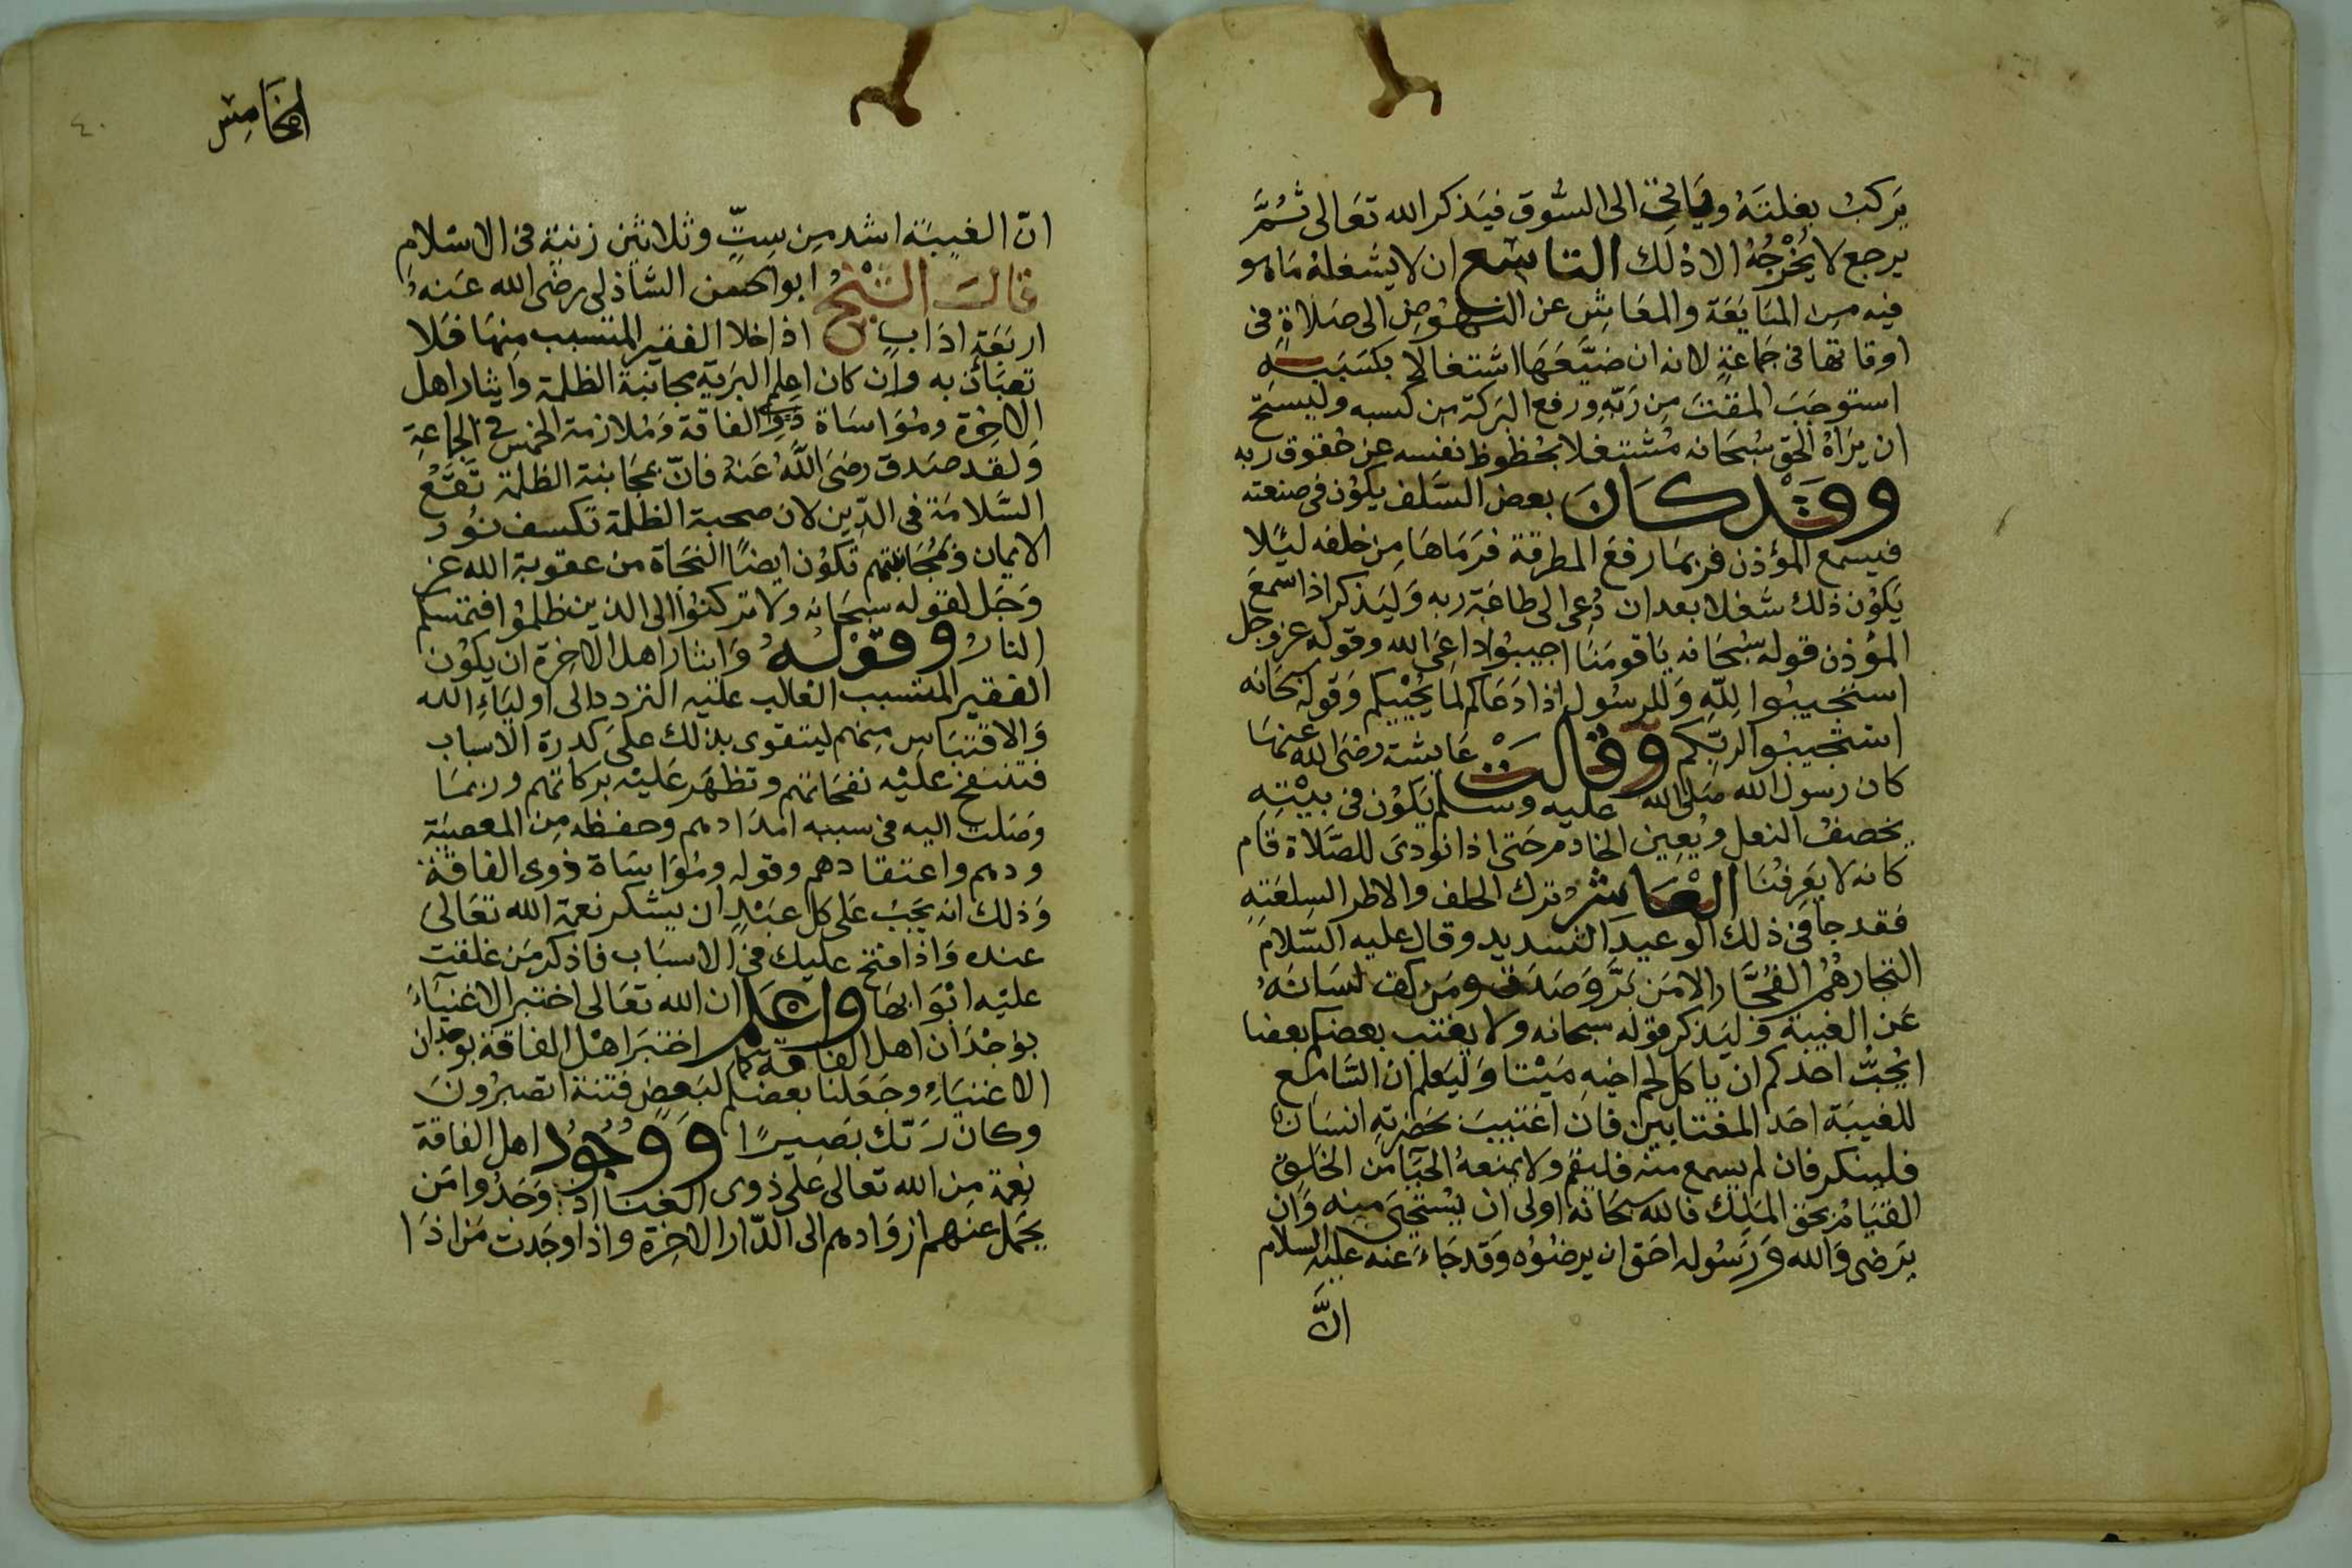 يركب بغلته وياتى الى السوق فيذكر الله تعالى ثم
يرجع لا يخرجه الا ذلك التاسع ان لا يشغله ما هو
فيه من المبايعة والمعايش عن النهوض الى صلاة فى
اوقاتها فى جماعة لانه ان ضيعها اشتغالا بكسبه
استوجب المقت من ربه ورفع البركة من كسبه وليستح
ان يراه الحق سبحانه مشتغلا بحظوظ نفسه عن حقوق ربه
وقد كان بعض السلف يكون فى صنعته
فيسمع المؤذن فربما رفع المطرقة فرماها من خلفه ليلا
يكون ذلك شغلا بعد ان دعى الى طاعة ربه وليذكر اذا سمع
المؤذن قوله سبحانه يا قومنا اجيبوا داعى الله وقوله عز وجل
استجيبوا لله وللرسول اذا دعاكم لما يحييكم وقوله سبحانه
استجيبوا لربكم وقالت عايشة رضى الله عنها
كان رسول الله صلى الله عليه وسلم يكون فى بيته
يخصف النعل ويعين الخادم حتى اذا نودى للصلاة قام
كانه لا يعرفنا العاشر ترك الحلف والاطرا لسلعته
فقد جا فى ذلك الوعيد الشديد وقال عليه السلام
التجار هم الفجار الا من بر وصدق ومن كف لسانه
عن الغيبة وليذكر قوله سبحانه ولا يغتب بعضكم بعضا
ايحب احدكم ان ياكل لحم اخيه ميتا وليعلم ان السامع
للغيبة احد المغتابين فان اغتيب بحضرته انسان
فلينكر فان لم يسمع منه فليقم ولا يمنعه الحيا من الخلق
القيام بحق الملك فالله سبحانه اولى ان يستحيى منه وان
يرضى والله ورسوله احق ان يرضوه وقد جاء عنه عليه السلام
ان
الخامس
٤٠
ان الغيبة اشد من ست وثلاثين زنية فى الاسلام
قال الشيخ ابو الحسن الشاذلى رضى الله عنه
اربعة اداب اذا خلا الفقير المتسبب منها فلا
تعبان به وان كان اعلم البرية مجانبة الظلمة وايثار اهل
الاخرة ومواساة ذوى الفاقة وملازمة الخمس فى الجماعة
ولقد صدق رضى الله عنه فان بمجانبة الظلمة تقع
السلامة فى الدين لان صحبة الظلمة تكسف نور
الايمان وبمجانبتهم تكون ايضا النجاة من عقوبة الله عز
وجل لقوله سبحانه ولا تركنوا الى الذين ظلموا فتمسكم
النار وقوله وايثار اهل الاخرة ان يكون
الفقير المتسبب الغالب عليه التردد الى اولياء الله
والاقتباس منهم ليتقوى بذلك على كدرة الاسباب
فتنفح عليه نفحاتهم وتظهر عليه بركاتهم وربما
وصلت اليه فى سببه امدادهم وحفظه من المعصية
ودهم واعتقادهم وقوله ومواساة ذوى الفاقة
وذلك انه يجب على كل عبد ان يشكر نعمة الله تعالى
عنده واذا فتح عليك فى الاسباب فاذكر من غلقت
عليه ابوابها واعلم ان الله تعالى اختبر الاغنياء
بوجدان اهل الفاقة كما اختبر اهل الفاقة بوجدان
الاغنياء وجعلنا بعضكم لبعض فتنة اتصبرون
وكان ربك بصيرا ووجود اهل الفاقة
نعمة من الله تعالى على ذوى الغنا اذ وجدوا من
يحمل عنهم ازوادهم الى الدار الاخرة واذا وجدت من اذا